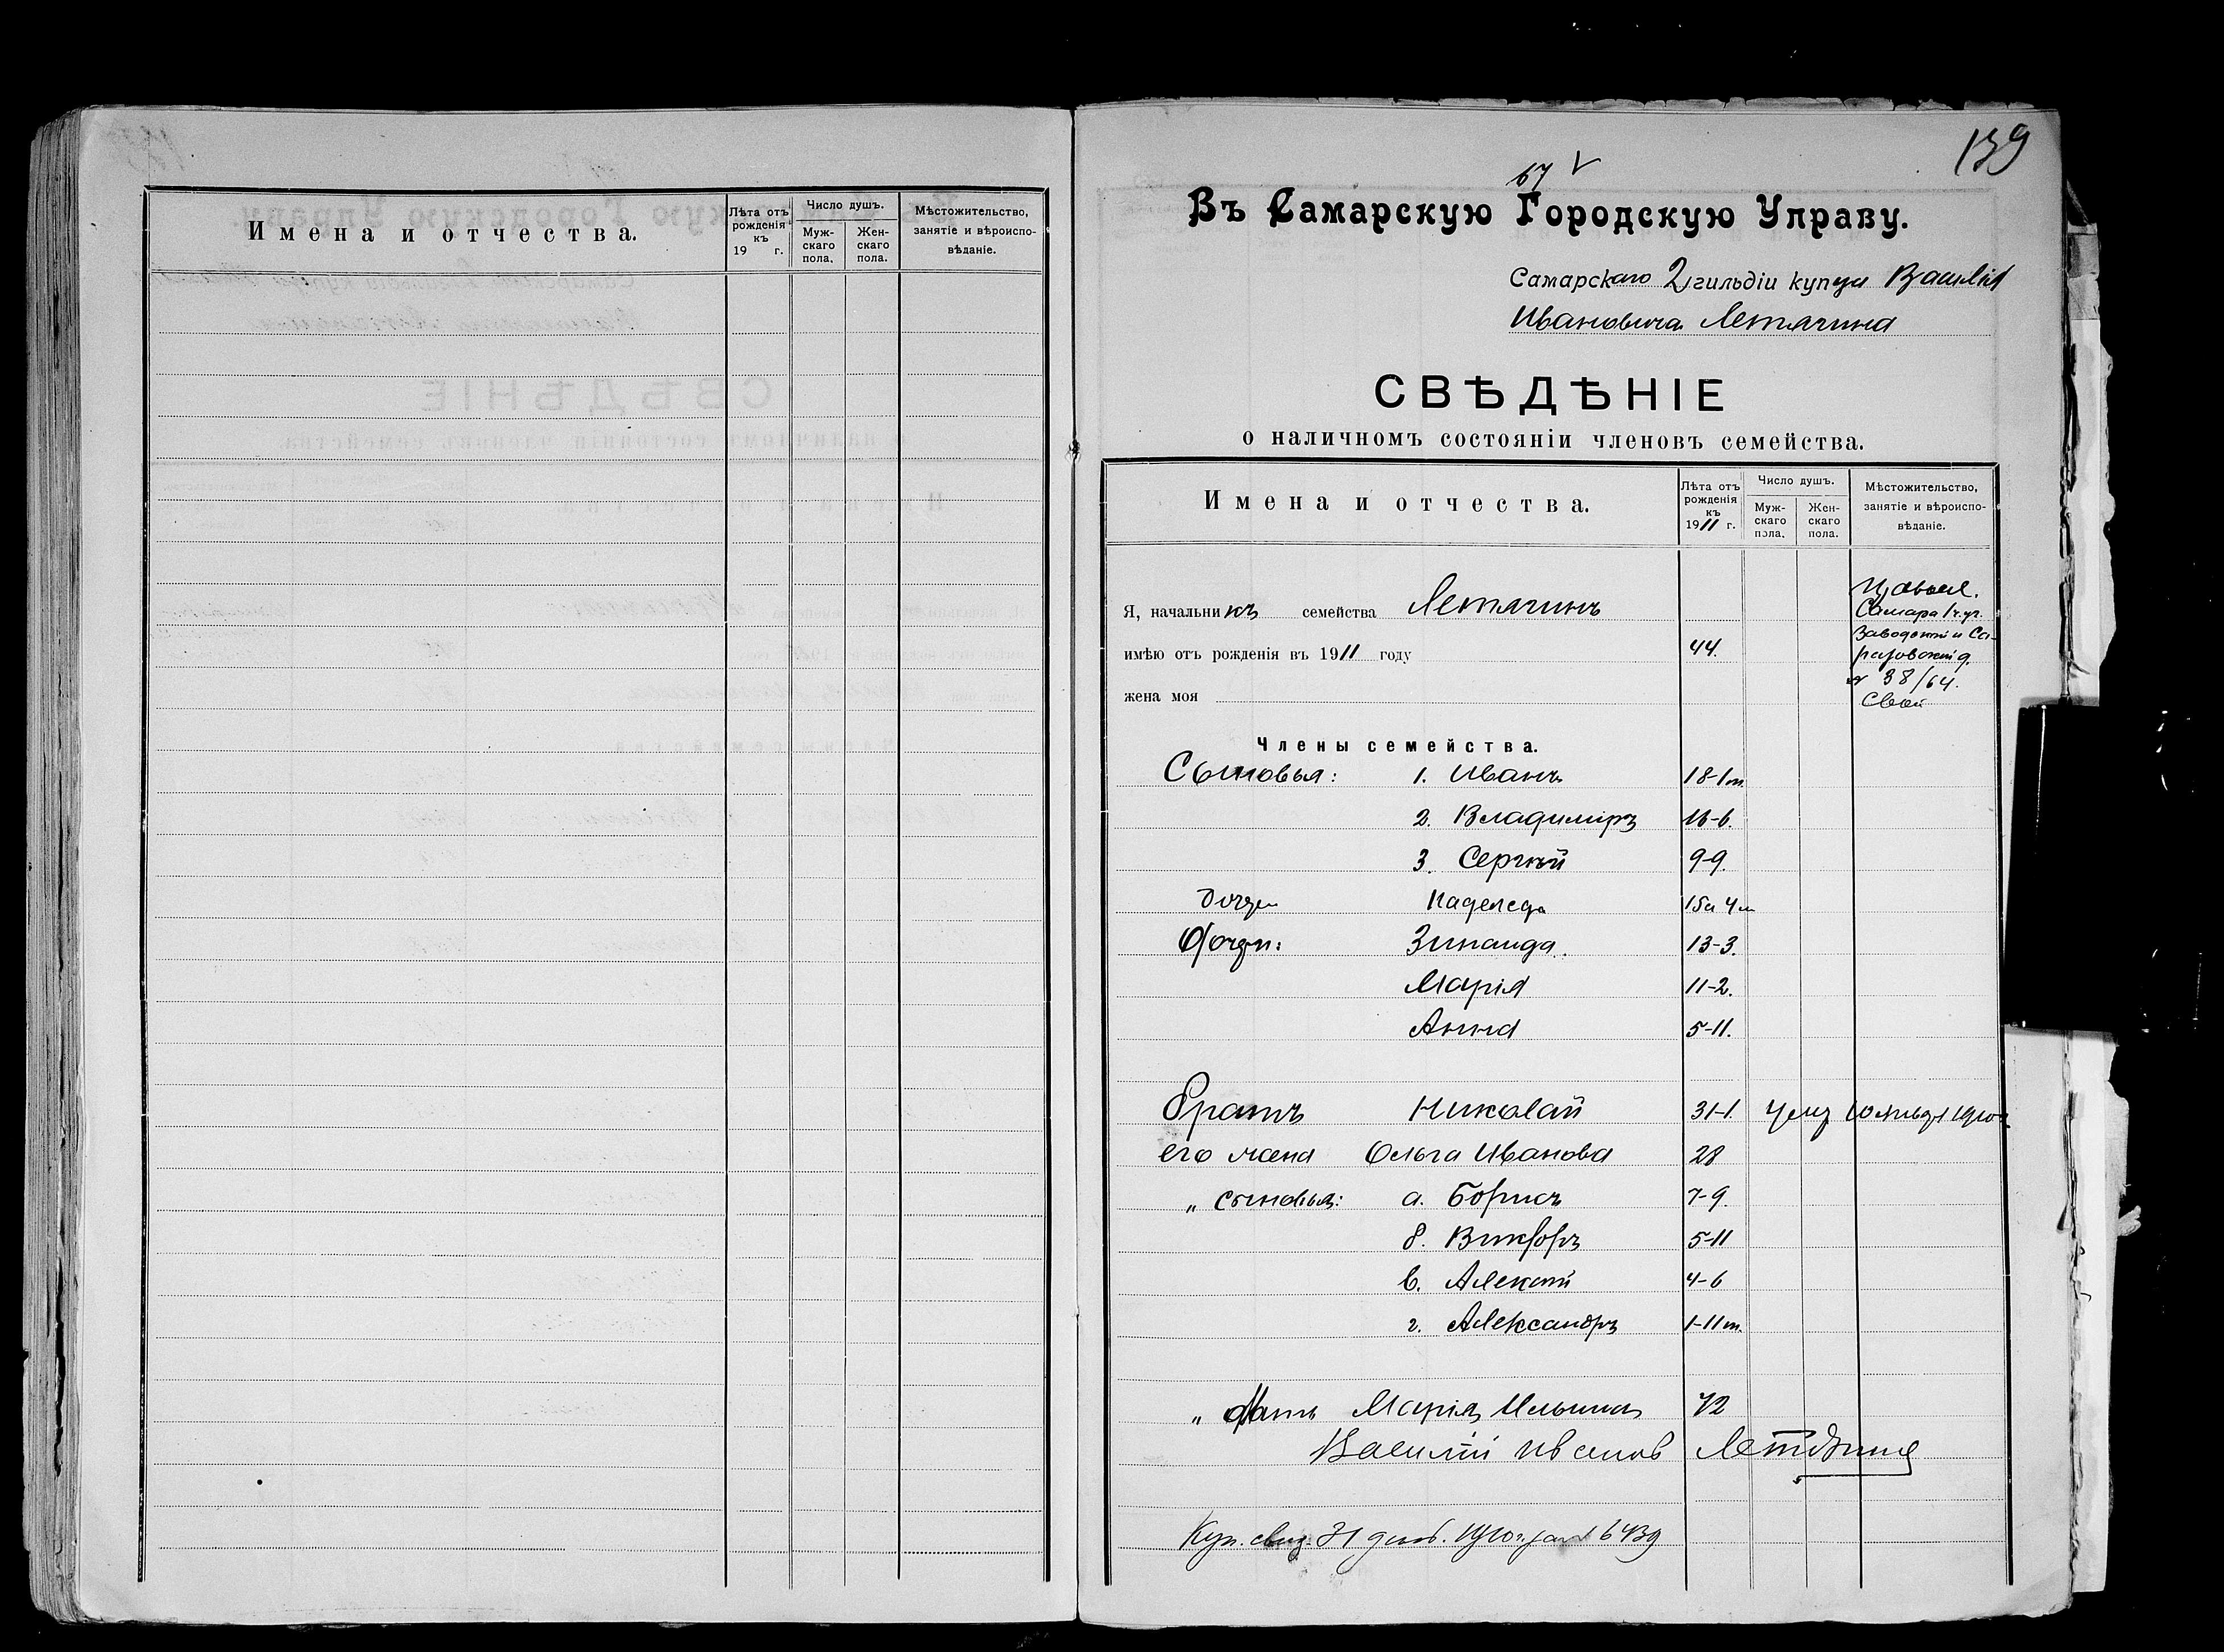 Имена и отчества.
Лѣта отъ рожденія къ 19 г.
Число душъ.
Муж-скаго пола.
Жен-скаго пола.
Мѣстожительство, занятіе и вѣроиспо-вѣданіе.
139
67 V
Въ Самарскую Городскую Управу.
Самарскаго 2 гильдіи купца Василія
Ивановича Летягина
СВѢДѢНІЕ
о наличномъ состояніи членовъ семейства.
Имена и отчества.
Лѣта отъ рожденія къ 1911 г.
Число душъ.
Муж-скаго пола.
Жен-скаго пола.
Мѣстожительство, занятіе и вѣроиспо-вѣданіе.
Я, начальникъ семейства Летягинъ
Самара 1 ч. уг.
Заводской и Са-
имѣю отъ рожденія въ 1911 году 44.
38/64.
жена моя
Свой
Члены семейства.
Сыновья: 1. Иванъ 18-1 м.
2. Владиміръ 16-6.
3. Сергѣй 9-9.
Дочери Надежда 15 и 4 м
Дочери: Зинаида. 13-3.
Марія 11-2.
Анна 5-11.
Братъ Николай 31-1. 1910 г.
его жена Ольга Иванова 28
„ сыновья: а. Борисъ 7-9.
б. Викторъ 5-11
в. Алексѣй 4-6
г. Александръ 1-11 м.
„ Мать Марія Ильина 72
Василий Иванов Летягин
Куп. свид. 31 декаб. 1910 г. за № 6439